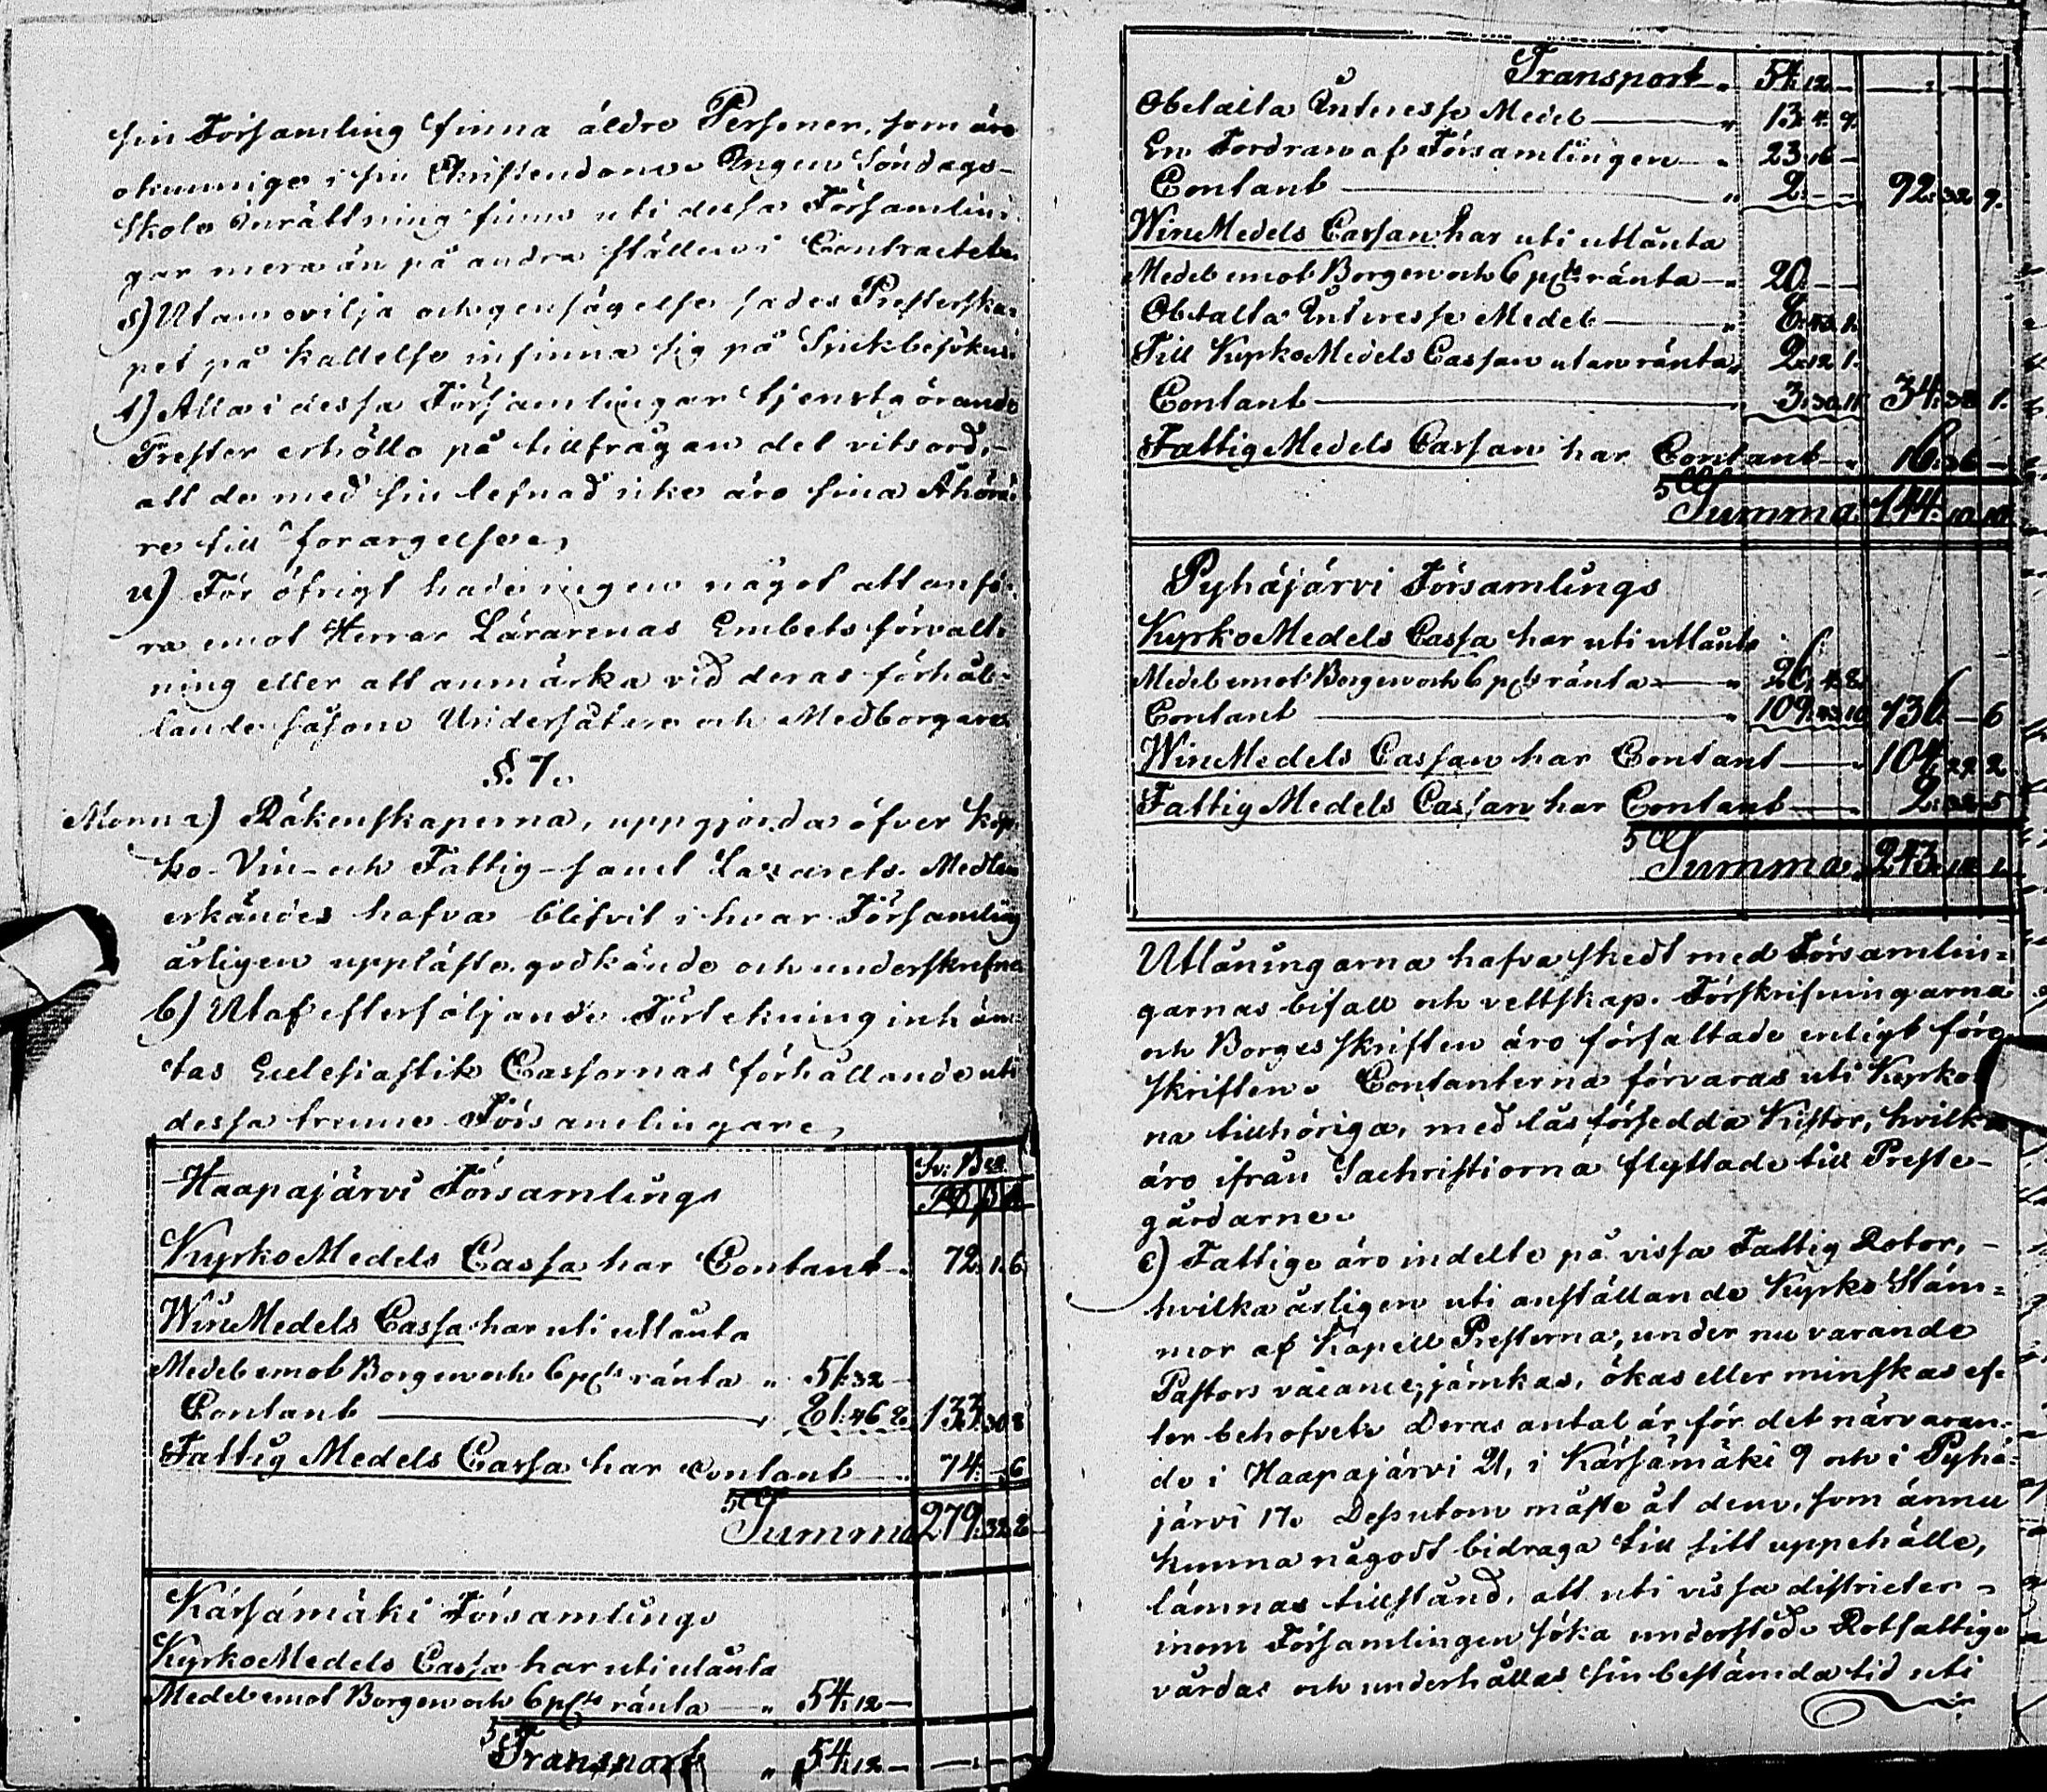 sin Församling finna äldre Personer, som äro
okunnige i sin Christendom. Ingen Söndags-
skole inrättning finns uti dessa Försam̅lin-
gar mera än på andra ställen i Contractet.
s) Utan ovilja och gensägelse sades Presterska-
pet på kallelse infinna sig på Sjukbesökni
t) Alla i dessa Församlingar tjenstgörande
Prester erhöllo på tillfrågan det vitsord,-
att de med sin lefnad icke äro sina Åhöra-
re till förargelse.
u) För öfrigt hade ingen något att anfö-
ra emot Herrar Lärarenas Embets förvalt-
ning eller att anmärka vid deras förhål-
lande såsom Undersåtare och Medborgare.
§. 7.
Mom a) Räkenskaperna, uppgjorda öfver Kyr-
ko- Vin- och Fattig- samt Lazarets- Medlen
erkändes hafva blifvit i hvar Församling
årligen uppläste, godkände och underskrefne
b) Utaf efterföljande Förtekning inhäm-
tas Ecclesiastik Cassornas förhållande uti
dessa trenne Församlingar.
Sv: Bco
Haapajärvi Församlings
KyrkoMedels Cassa har Contant 72. 1. 6.
WinMedels Cassa har uti utlånta
Medel emot Borgen och 6 pCts ränta " 51: 32 —
Contant — " 81: 46. 2. 133. 30 8
Fattig Medels Cassa har Contant — " 74. — 6
Summa 279. 32. 2
Kärsämäki Församlings
KyrkoMedels Cassa har uti utånta
Medel emot Borgen och 6 pCts ränta — " 54. 12 —
Transport " 54. 12 —
Transport " 54. 12 —
Obetalta Interesse Medel — " 13. 4. 9.
En Fordran af Församlingen — " 23. 16 —
Contant — " 2. — — 92. 32. 9.
WinMedels Cassan har uti utlånta
Medel emot Borgen och 6 pCts ränta — " 20. — —
Obetalta Interesse Medel — "
Till KyrkoMedels Cassan utan ränta " 2. 12 1.
Contant — " 34.
FattigMedels Cassan har Contant — " 16. 26 —
Summa 144.
Pyhäjärvi Församlings
KyrkoMedels Cassa har uti utlånte
Medel emot Borgen och 6 pCts ränta — " 26. 4. 2.
Contant — " 109. 43. 10 136. — 6
WinMedels Cassan har Contant — " 104. 22. 2
Fattig Medels Cassan har Contant — " 2.
Summa 243.
Utlåningarna hafva skedt med Församlin-
garnas bifall och vettskap. Förskrifningarna
och Borges skriften äro författade enligt före-
skriften. Contanterna förvaras uti Kyrkor-
na tillhöriga, med lås försedda Kistor, hvilka
äro ifrån Sachristiorna flyttade till Preste-
gårdarne.
c) Fattige äro indelte på vissa Fattig Rotor, -
hvilka årligen uti anställande Kyrko Stäm-
mor af Kapell Presterna, under nu varande
Pastors vacance, jämkas, ökas eller minskas ef-
ter behofvet. Deras antal är för det närvaran-
de i Haapajärvi 21, i Kärsämäki 9 och i Pyhä-
järvi 17. Dessutom måste åt dem, som ännu
kunna någodt bidraga till sitt uppehälle,
lämnas tillstånd, att uti vissa districter -
inom Församlingen söka understöd. Rotfattige
vårdas och underhållas sin bestämda tid uti